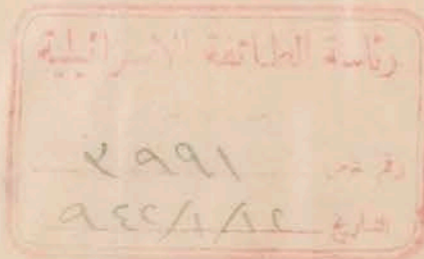 رئاسة الطائفة الاسرائيلية
رقم ٢٩٩١
التاريخ ٩٤٢/١/١٢